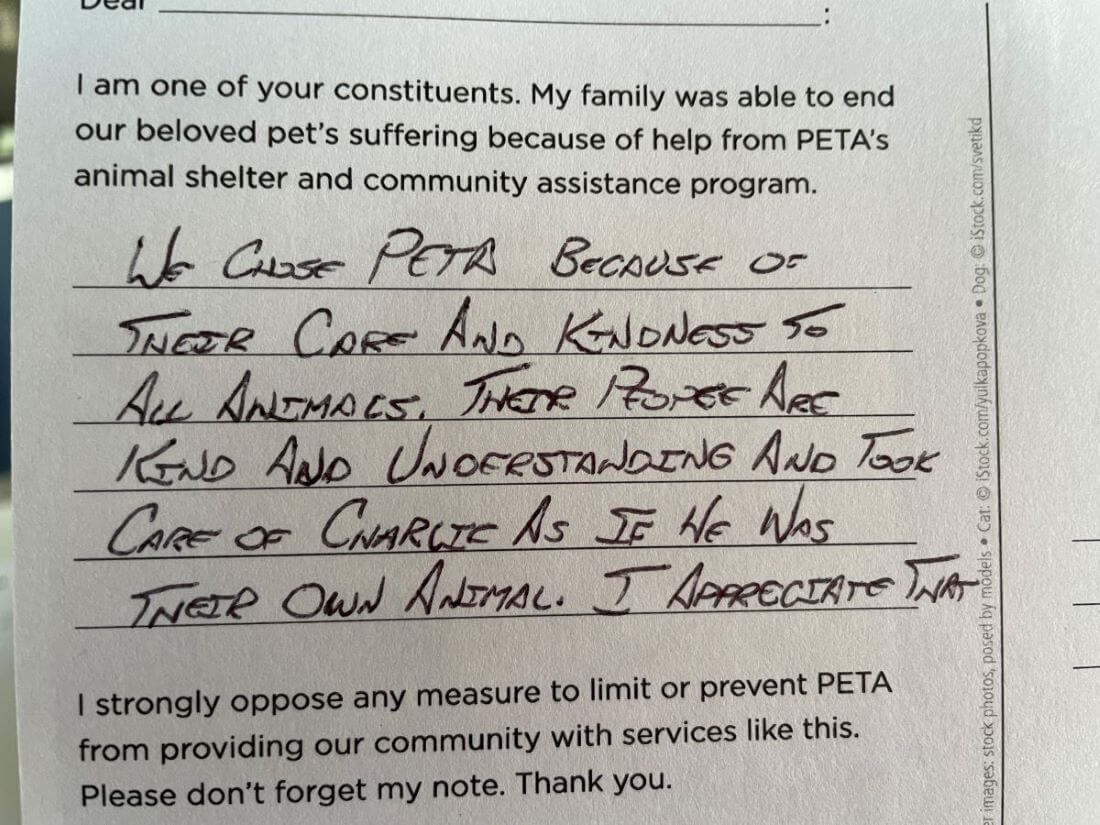 Dear ____________________:
I am one of your constituents. My family was able to end
our beloved pet's suffering because of help from PETA's
animal shelter and community assistance program.
WE CHOSE PETA BECAUSE OF
THEIR CARE AND KINDNESS TO
ALL ANIMALS. THEIR PEOPLE ARE
KIND AND UNDERSTANDING AND TOOK
CARE OF CHARLIE AS IF HE WAS
THEIR OWN ANIMAL. I APPRECIATE THAT
I strongly oppose any measure to limit or prevent PETA
from providing our community with services like this.
Please don't forget my note. Thank you.
images: stock photos, posed by models • Cat: © iStock.com/yulkapopkova • Dog: © iStock.com/svetikd